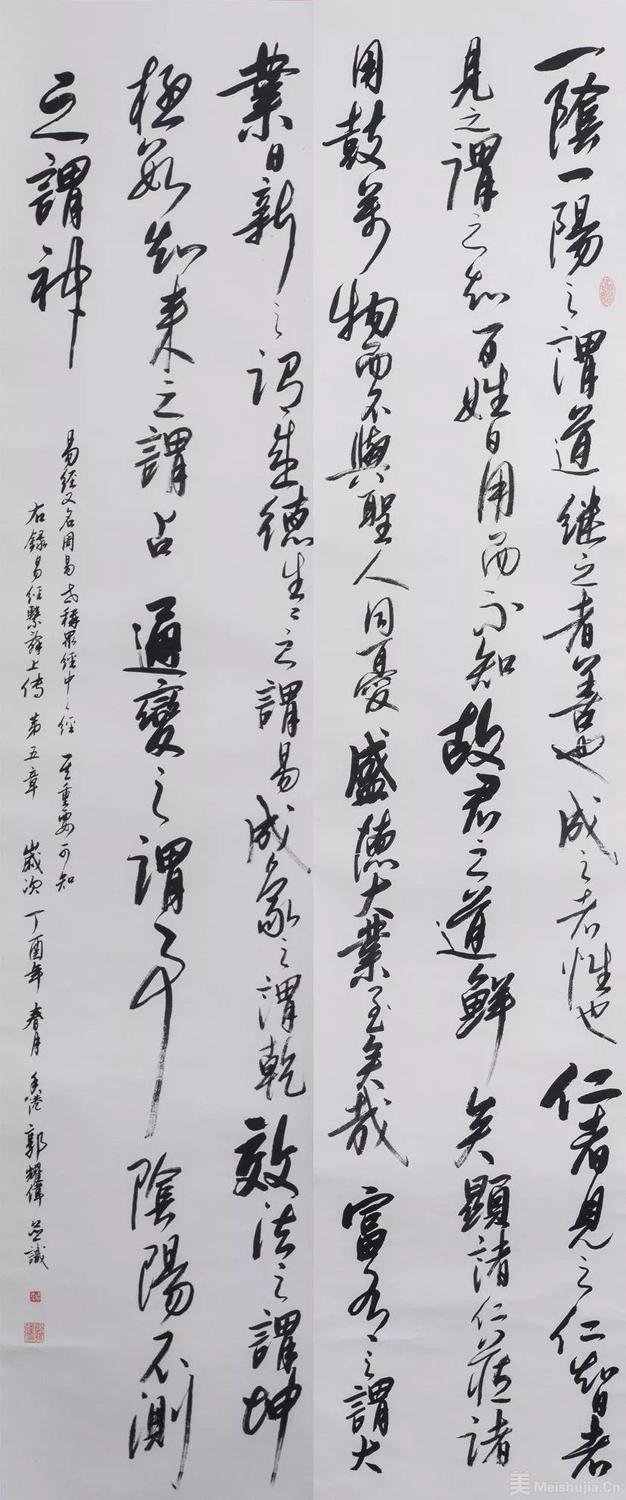 一陰一陽之謂道继之者善也成之者性也仁者見之仁智者
見之謂之知百姓日用而不知故君之道鲜矣顯諸仁藏諸
用鼓萬物而不與聖人同憂盛德大業至矣哉富有之謂大
業日新之謂盛德生生之謂易成象之謂乾效法之謂坤
極数知来之謂占通變之謂事陰陽不測
之謂神
易经又名周易古稱眾经中之经至重要可知
右錄易经繫辞上传第五章歲次丁酉年春月香港郭耀偉並識
美 Meishujia.Cn